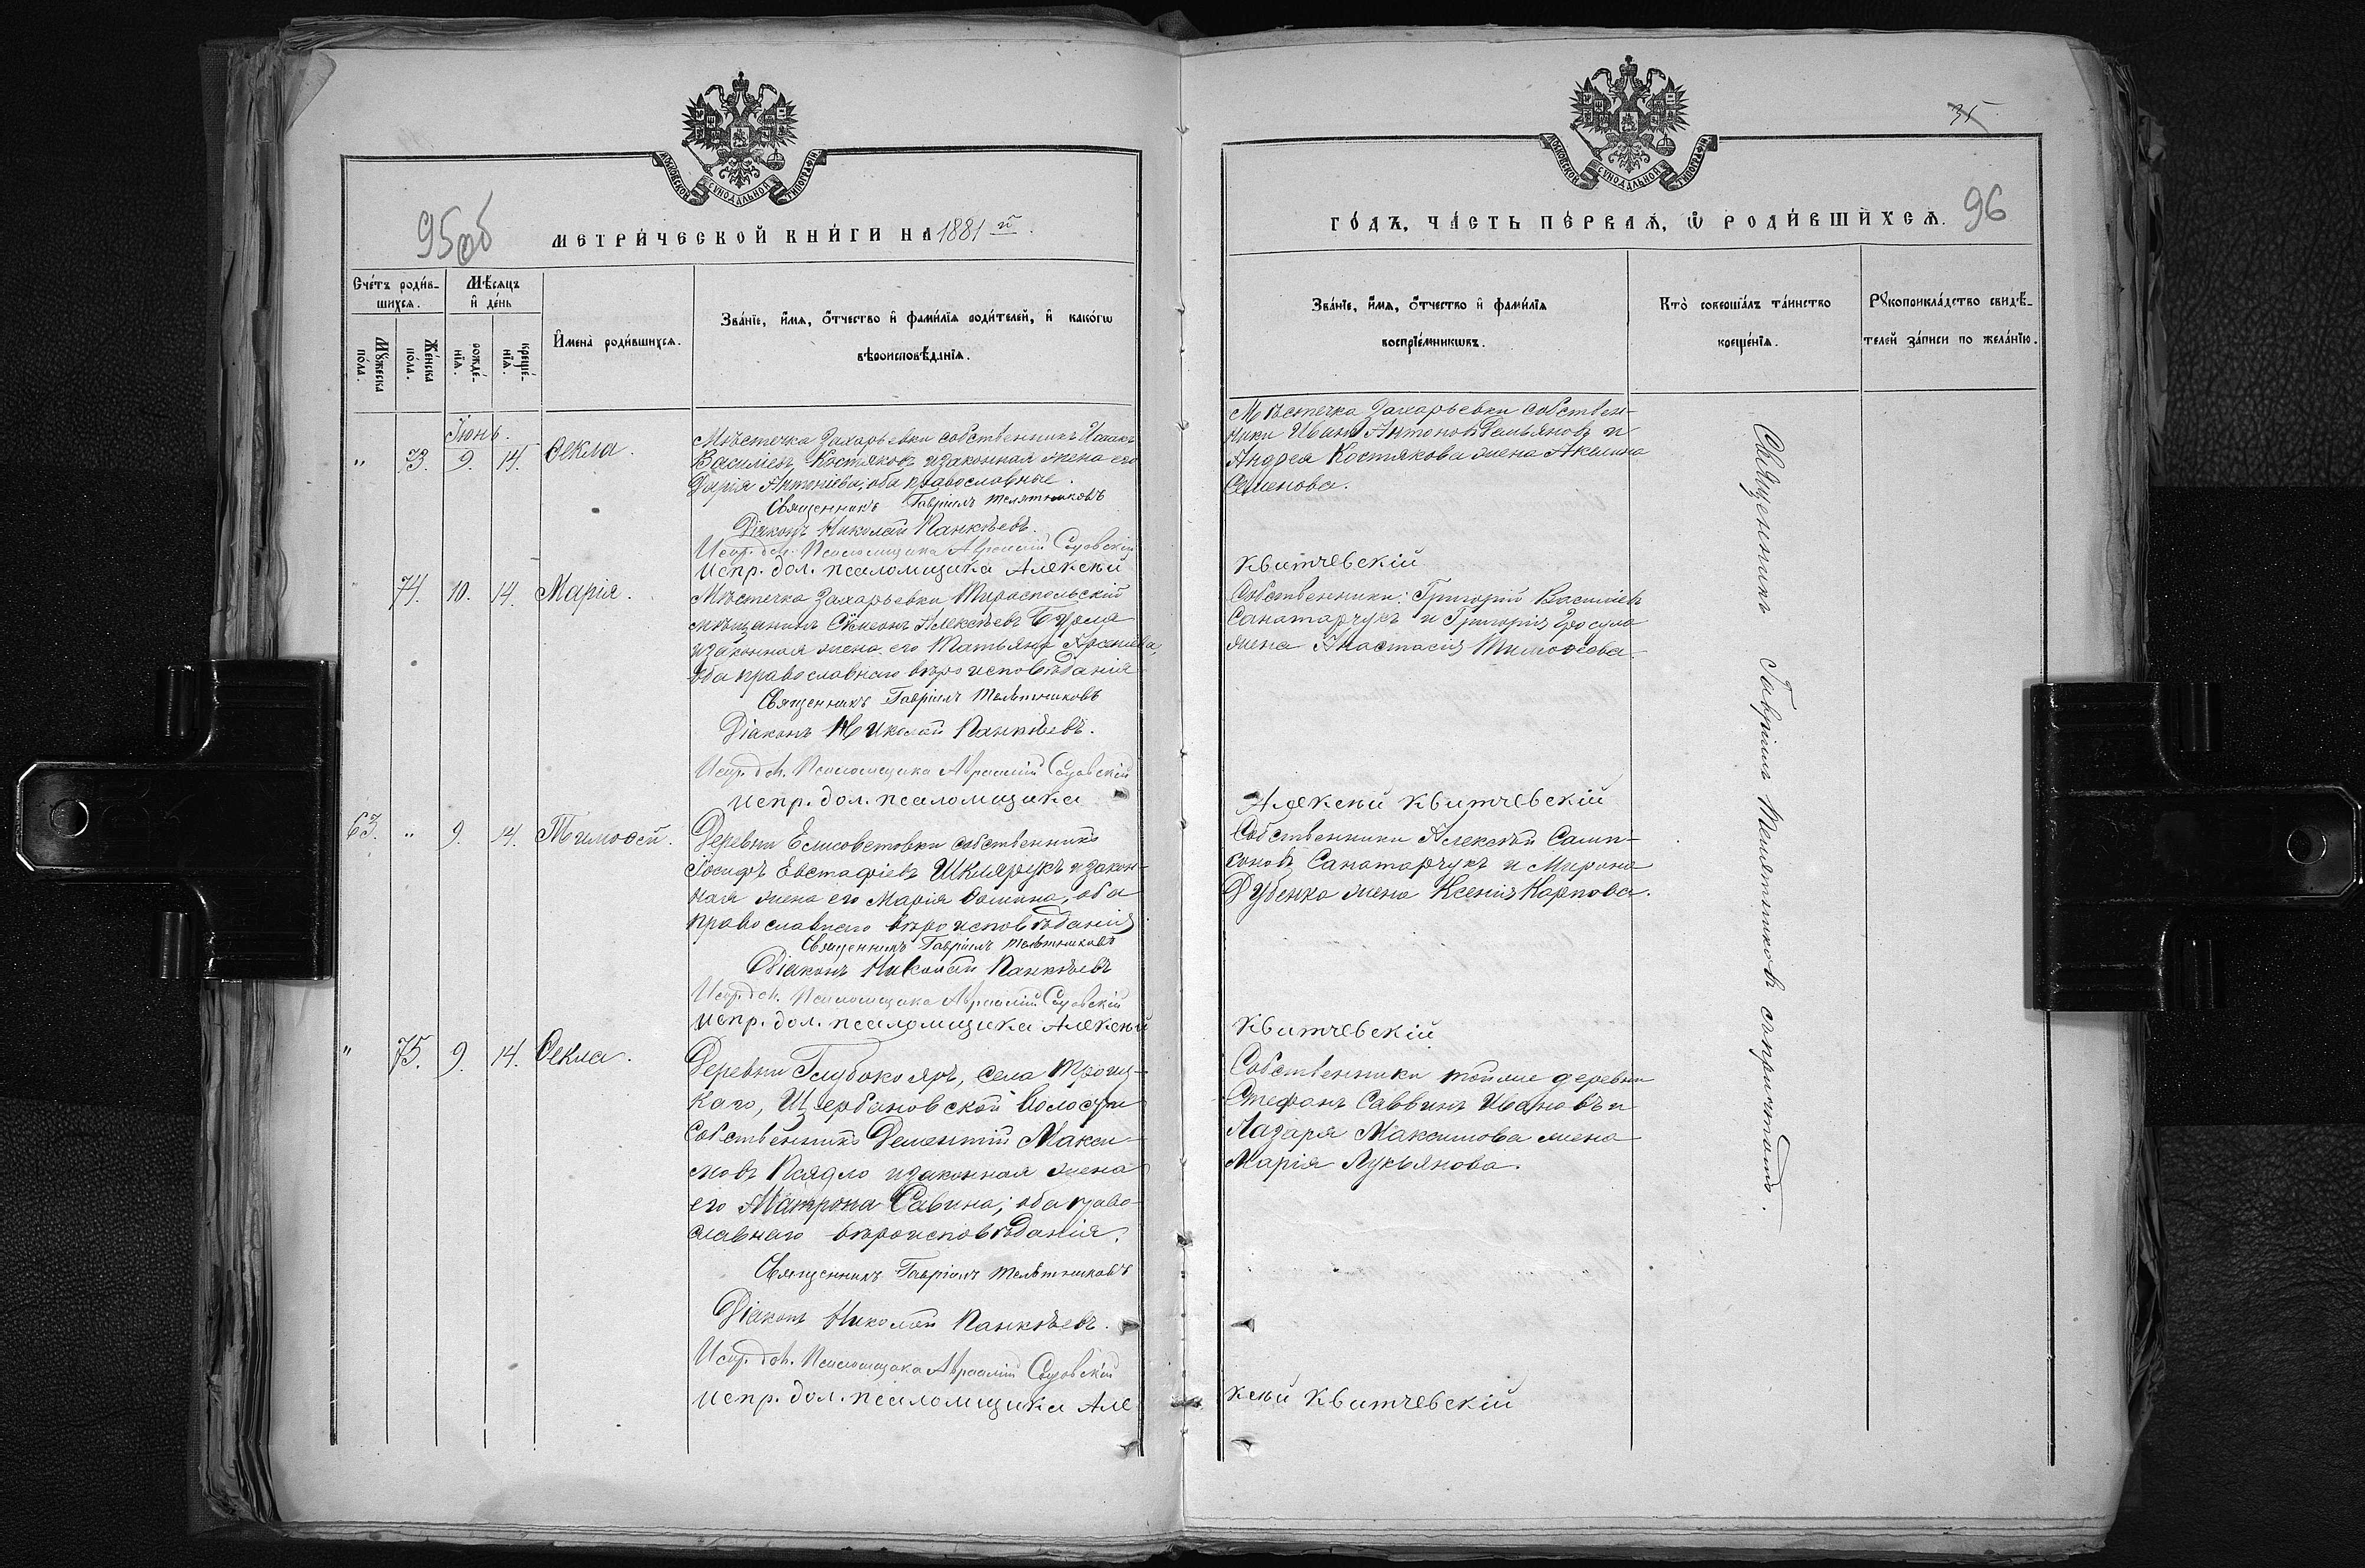 МОСКОВСКОЙ СѴНОДАЛЬНОЙ ТИПОГРАФІИ.
95об
МЕТРИ́ЧЕСКОЙ КНИ́ГИ НА 1881 й.
Сче́тъ роди́в-
шихся.
Мѣ́сяцъ
и҆ де́нь
Мꙋ́жеска
по́ла.
Же́нска
пола.
рожде́-
нїя.
креще́-
нїя.
И҆мена̀ роди́вшихся.
Зва́нїе, и҆́мя, ѻ҆́тчество и҆ фами́лїя роди́телей, и҆ како́гѡ
вѣроисповѣ́данїя.
Іюнь.
" 73. 9. 14. Ѳекла.
Мѣстечка Захарьевки собственникъ Исаакъ
Василіевъ Костяковъ и законная жена его
Дарія Антоніева, оба православные.
Священникъ Гавріилъ Телятниковъ
Діаконъ Николай Панкѣевъ.
Испр. дол. Псаломщика Авраамій Садовскій
Испр. дол. псаломщика Алексѣй
" 74. 10. 14. Марія.
Мѣстечка Захарьевки Тираспольскій
мѣщанинъ Симеонъ Алексѣевъ
и законная жена его Татьяна
оба православнаго вѣроисповѣданія
Священникъ Гавріилъ Телятниковъ
Діаконъ Николай Панкѣевъ.
Испр. дол. Псаломщика Авраамій Садовскій
Испр. дол. псаломщика
63. " 9. 14. Тимоѳей.
Деревни Елисоветовки собственникъ
Іосифъ Евстафіевъ Шкляррукъ и закон-
ная жена его Марія Ѳомина, оба
православнаго вѣроисповѣданія
Священникъ Гавріилъ Телятниковъ
Діаконъ Николай Панкѣевъ
Испр. дол. Псаломщика Авраамій Садовскій
испр. дол. псаломщика Алексѣй
" 75. 9. 14. Ѳекла.
Деревни Глубокояръ, села Троиц-
каго, Щербановской волости
собственникъ Дементій Макси-
мовъ Псядло и законная жена
его Матрона Савина; оба право-
славнаго вѣроисповѣданія.
Священникъ Гавріилъ Телятниковъ
Діаконъ Николай Панкѣевъ.
Испр. дол. Псаломщика Авраамій Садовскій
испр. дол. псаломщика Але
МОСКОВСКОЙ СѴНОДАЛЬНОЙ ТИПОГРАФІИ.
35
96
ГО́ДЪ, ЧА́СТЬ ПЕ́РВАЯ, Ѡ҆ РОДИ́ВШИХСЯ.
Зва́нїе, и҆́мя, ѻ҆́тчество и҆ фами́лїя
воспрїе́мникѡвъ.
Кто̀ соверша́лъ та́инство
креще́нїя.
Рꙋкоприкла́дство свидѣ́-
телей за́писи по жела́нїю.
Мѣстечка Захарьевки собствен-
ники Иванъ Антоновъ Демьяновъ и
Андрея Костякова жена Акилина
Семенова.
Квитчевскій
Собственники: Григорій Василіевъ
Санатарчукъ и Григорія Гросула
жена Анастасія Тимоѳеева.
Алексѣй Квитчевскій
Собственники Алексѣй Самп-
соновъ Санатарчукъ и Мирона
Дубенка жена Ксенія Карпова.
Квитчевскій
Собственники тойже деревни
Стефанъ Саввинъ Ивановъ и
Лазаря Максимова жена
Марія Лукьянова.
ксѣй Квитчевскій
Священникъ Гавріилъ Телятниковъ съ причтомъ.